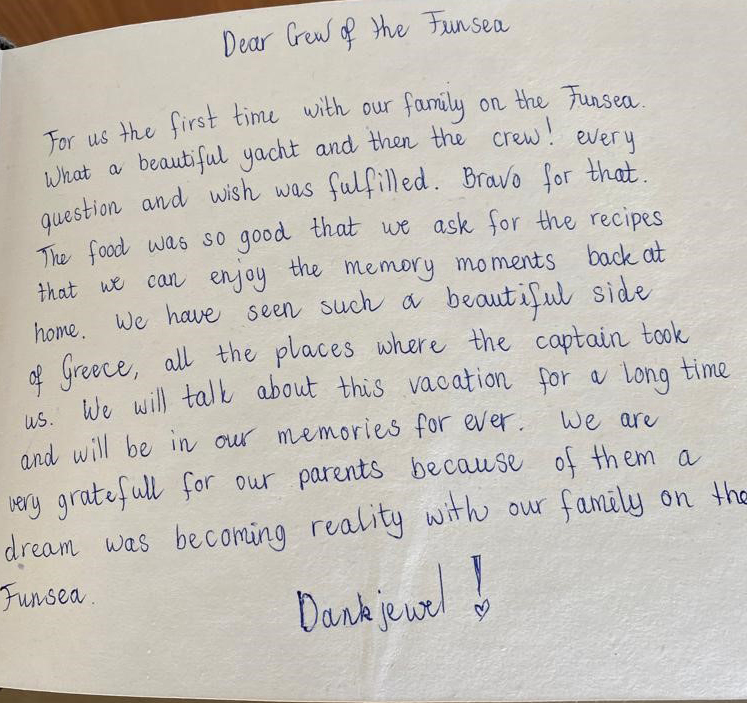 Dear Crew of the Funsea
For us the first time with our family on the Funsea.
What a beautiful yacht and then the crew! every
question and wish was fulfilled. Bravo for that.
The food was so good that we ask for the recipes
that we can enjoy the memory moments back at
home. We have seen such a beautiful side
of Greece, all the places where the captain took
us. We will talk about this vacation for a long time
and will be in our memories for ever. We are
very gratefull for our parents because of them a
dream was becoming reality with our family on the
Funsea.
Dankjewel!